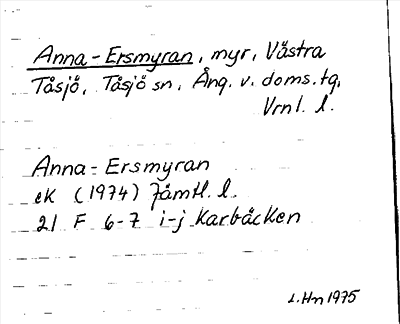 Anna-Ersmyran, myr, Västra
Tåsjö, Tåsjö sn, Ång. v. doms.tg,
Vrnl. l.
Anna-Ersmyran
ek (1974) Jämtl. l.
21 F 6-7 i-j Karbäcken
L.Hn 1975